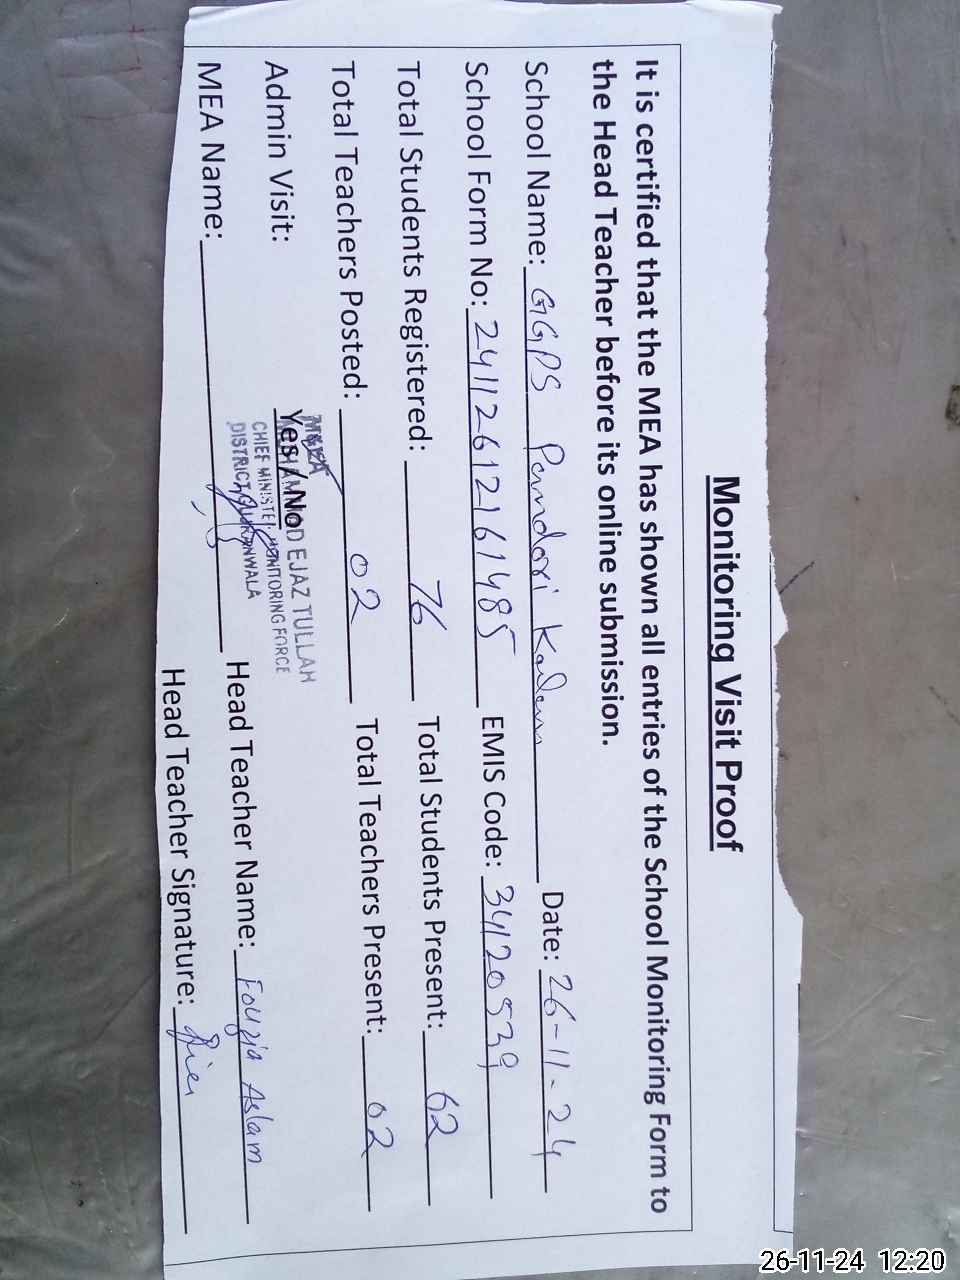 Monitoring Visit Proof
It is certified that the MEA has shown all entries of the School Monitoring Form to
the Head Teacher before its online submission.
School Name: GGPS Pandori Kalan Date: 26-11-24
School Form No: 24112612161485 EMIS Code: 34120539
Total Students Registered: 76 Total Students Present: 62
Total Teachers Posted: 02 Total Teachers Present: 02
Admin Visit: Yes / No
M&EA
EJAZ TULLAH
CHIEF MINISTER MONITORING FORCE
DISTRICT GUJRANWALA
MEA Name: Head Teacher Name: Fouzia Aslam
Head Teacher Signature:
26-11-24 12:20